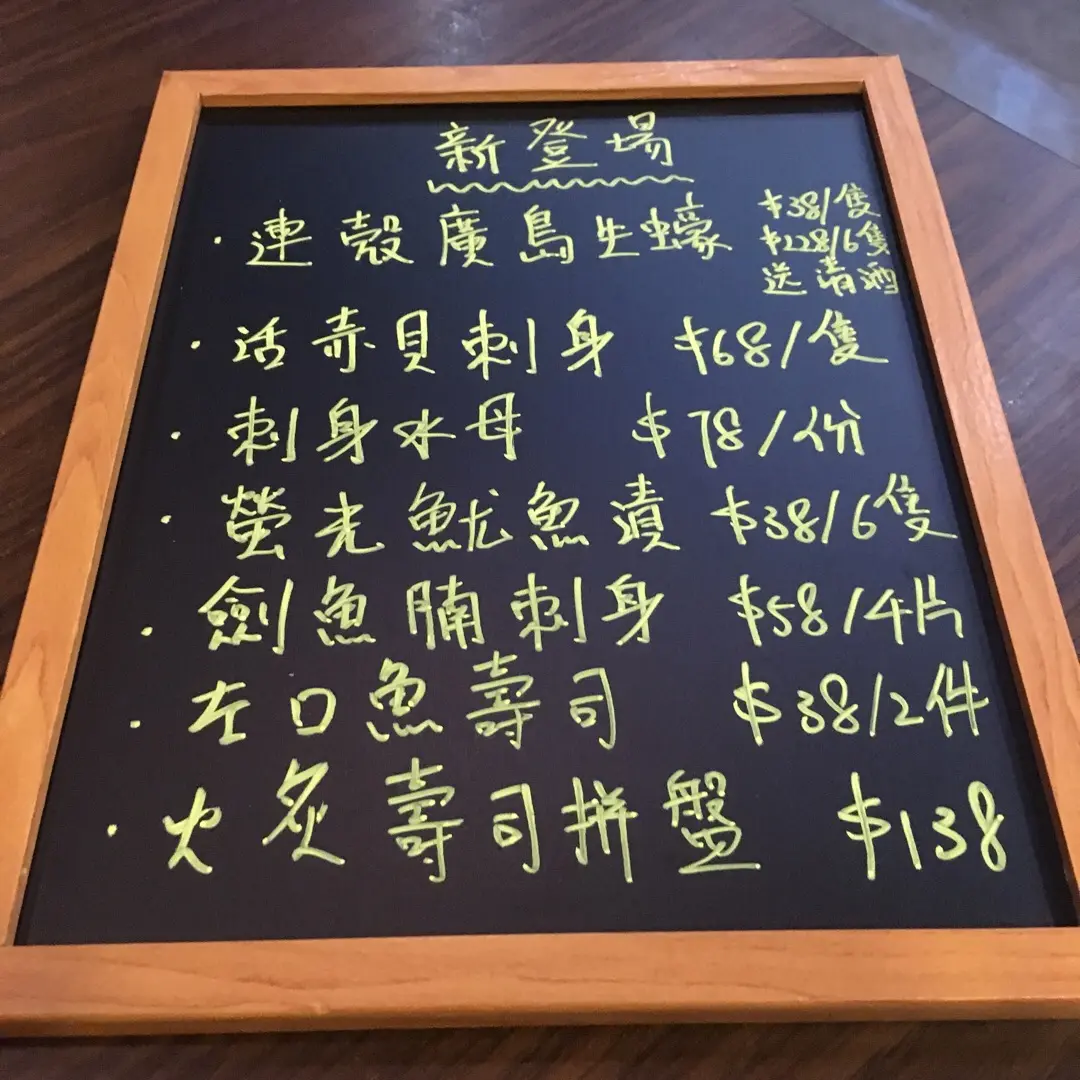 新登場
· 連殼廣島生蠔 $38/隻
$228/6隻
送清酒
· 活赤貝刺身 $68/隻
· 刺身水母 $78/份
· 螢光魷魚漬 $38/6隻
· 劍魚腩刺身 $58/4片
· 左口魚壽司 $38/2件
· 火炙壽司拼盤 $138